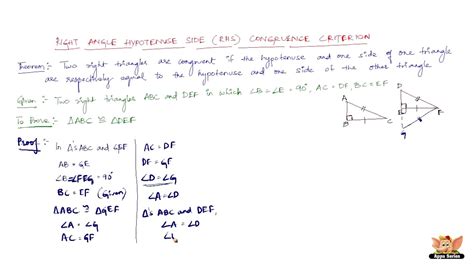 RIGHT ANGLE HYPOTENUSE SIDE (RHS) CONGRUENCE CRITERION
Theorem:- Two right triangles are congruent if the hypotenuse and one side of one triangle
are respectively equal to the hypotenuse and one side of the other triangle
Given:- Two right triangles ABC and DEF in which ∠B=∠E = 90°, AC = DF, BC = EF
To Prove:- ΔABC ≅ ΔDEF
Proof:-
In Δ's ABC and GEF
AB = GE
∠B=∠FEG = 90°
BC = EF (Given)
ΔABC ≅ ΔGEF
∠A = ∠G
AC = GF
AC = DF
DF = GF
∠D = ∠G
∠A = ∠D
Δ's ABC and DEF,
∠A = ∠D
∠
A
B
C
D
E
F
G
Appu Series